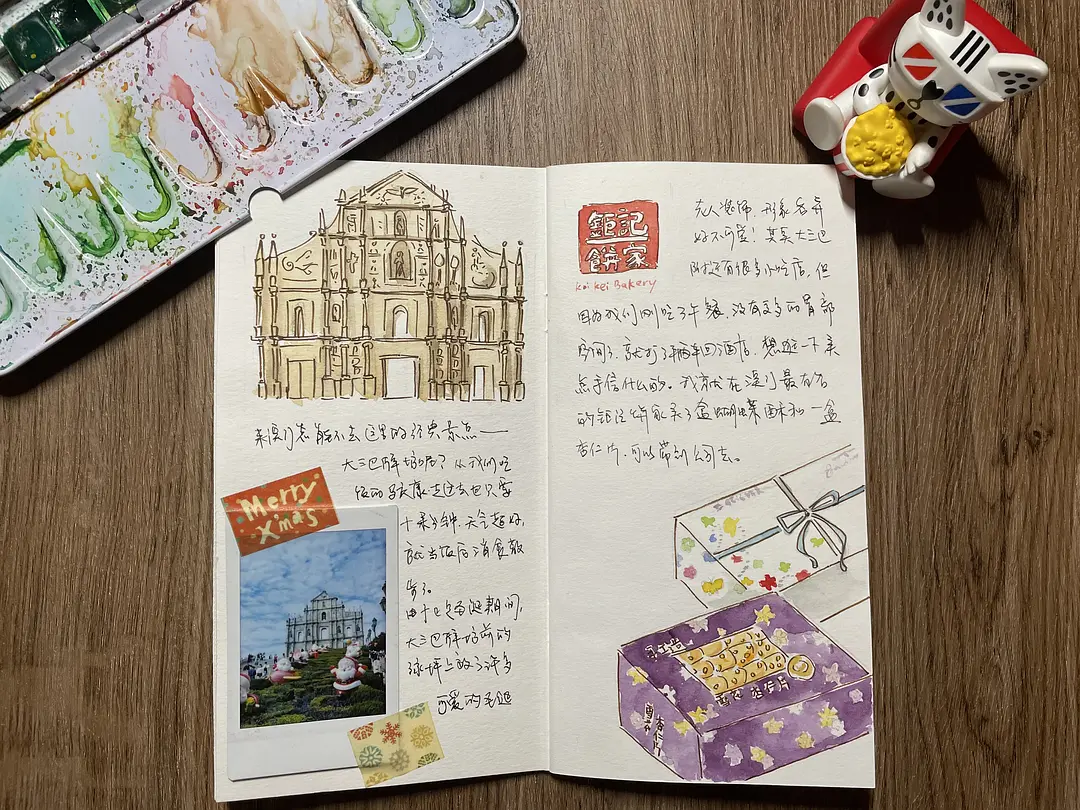 来澳门怎能不去这里的经典景点——
大三巴牌坊呢？从我们吃
饭的 走过去也只需
十来分钟,天气超好,
就当饭后消食散
步了。
由于也是圣诞期间,
大三巴牌坊前的
坪上放了许多
可爱的圣诞
Merry
X'mas
鉅記
餅家
Koi Kei Bakery
老人装饰,形象各异
好不可爱！其实大三巴
附近还有很多小吃店,但
因为我们刚吃了午餐,没有更多的胃部
空间了,就打了辆车回酒店。想逛一下买
点手信什么的。我就在澳门最有名
的钜记饼家买了盒蝴蝶酥和一盒
杏仁片,可以带到公司去。
杏仁片